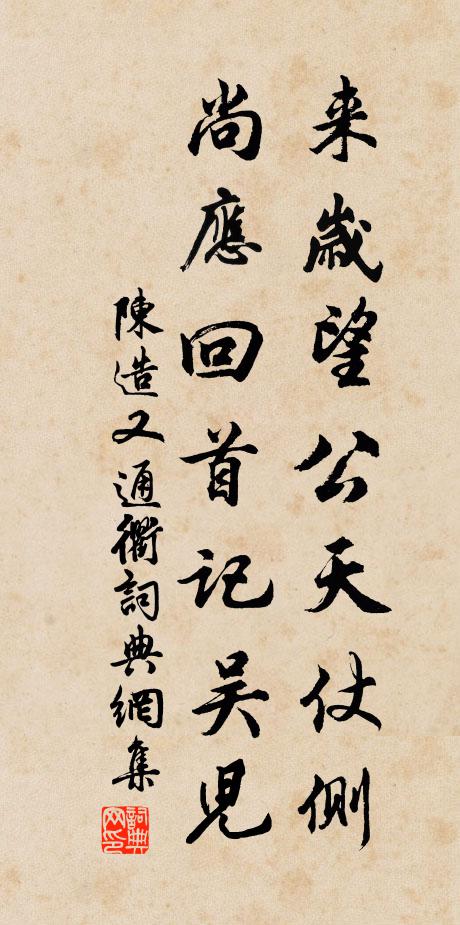 来歲望公天仗側
尚應回首記吴兒
陳造又通衢詞典網集
詞典網印